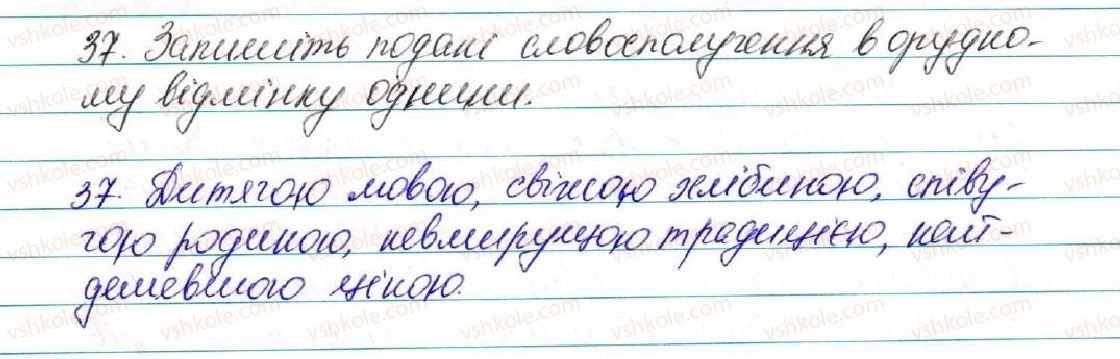 37. Запишіть подані словосполучення в орудно-
му відмінку однини.
37. Дитячою мовою, свіжою хлібиною, співу-
чою родиною, невмирущою традицією, най-
дешевшою ціною.